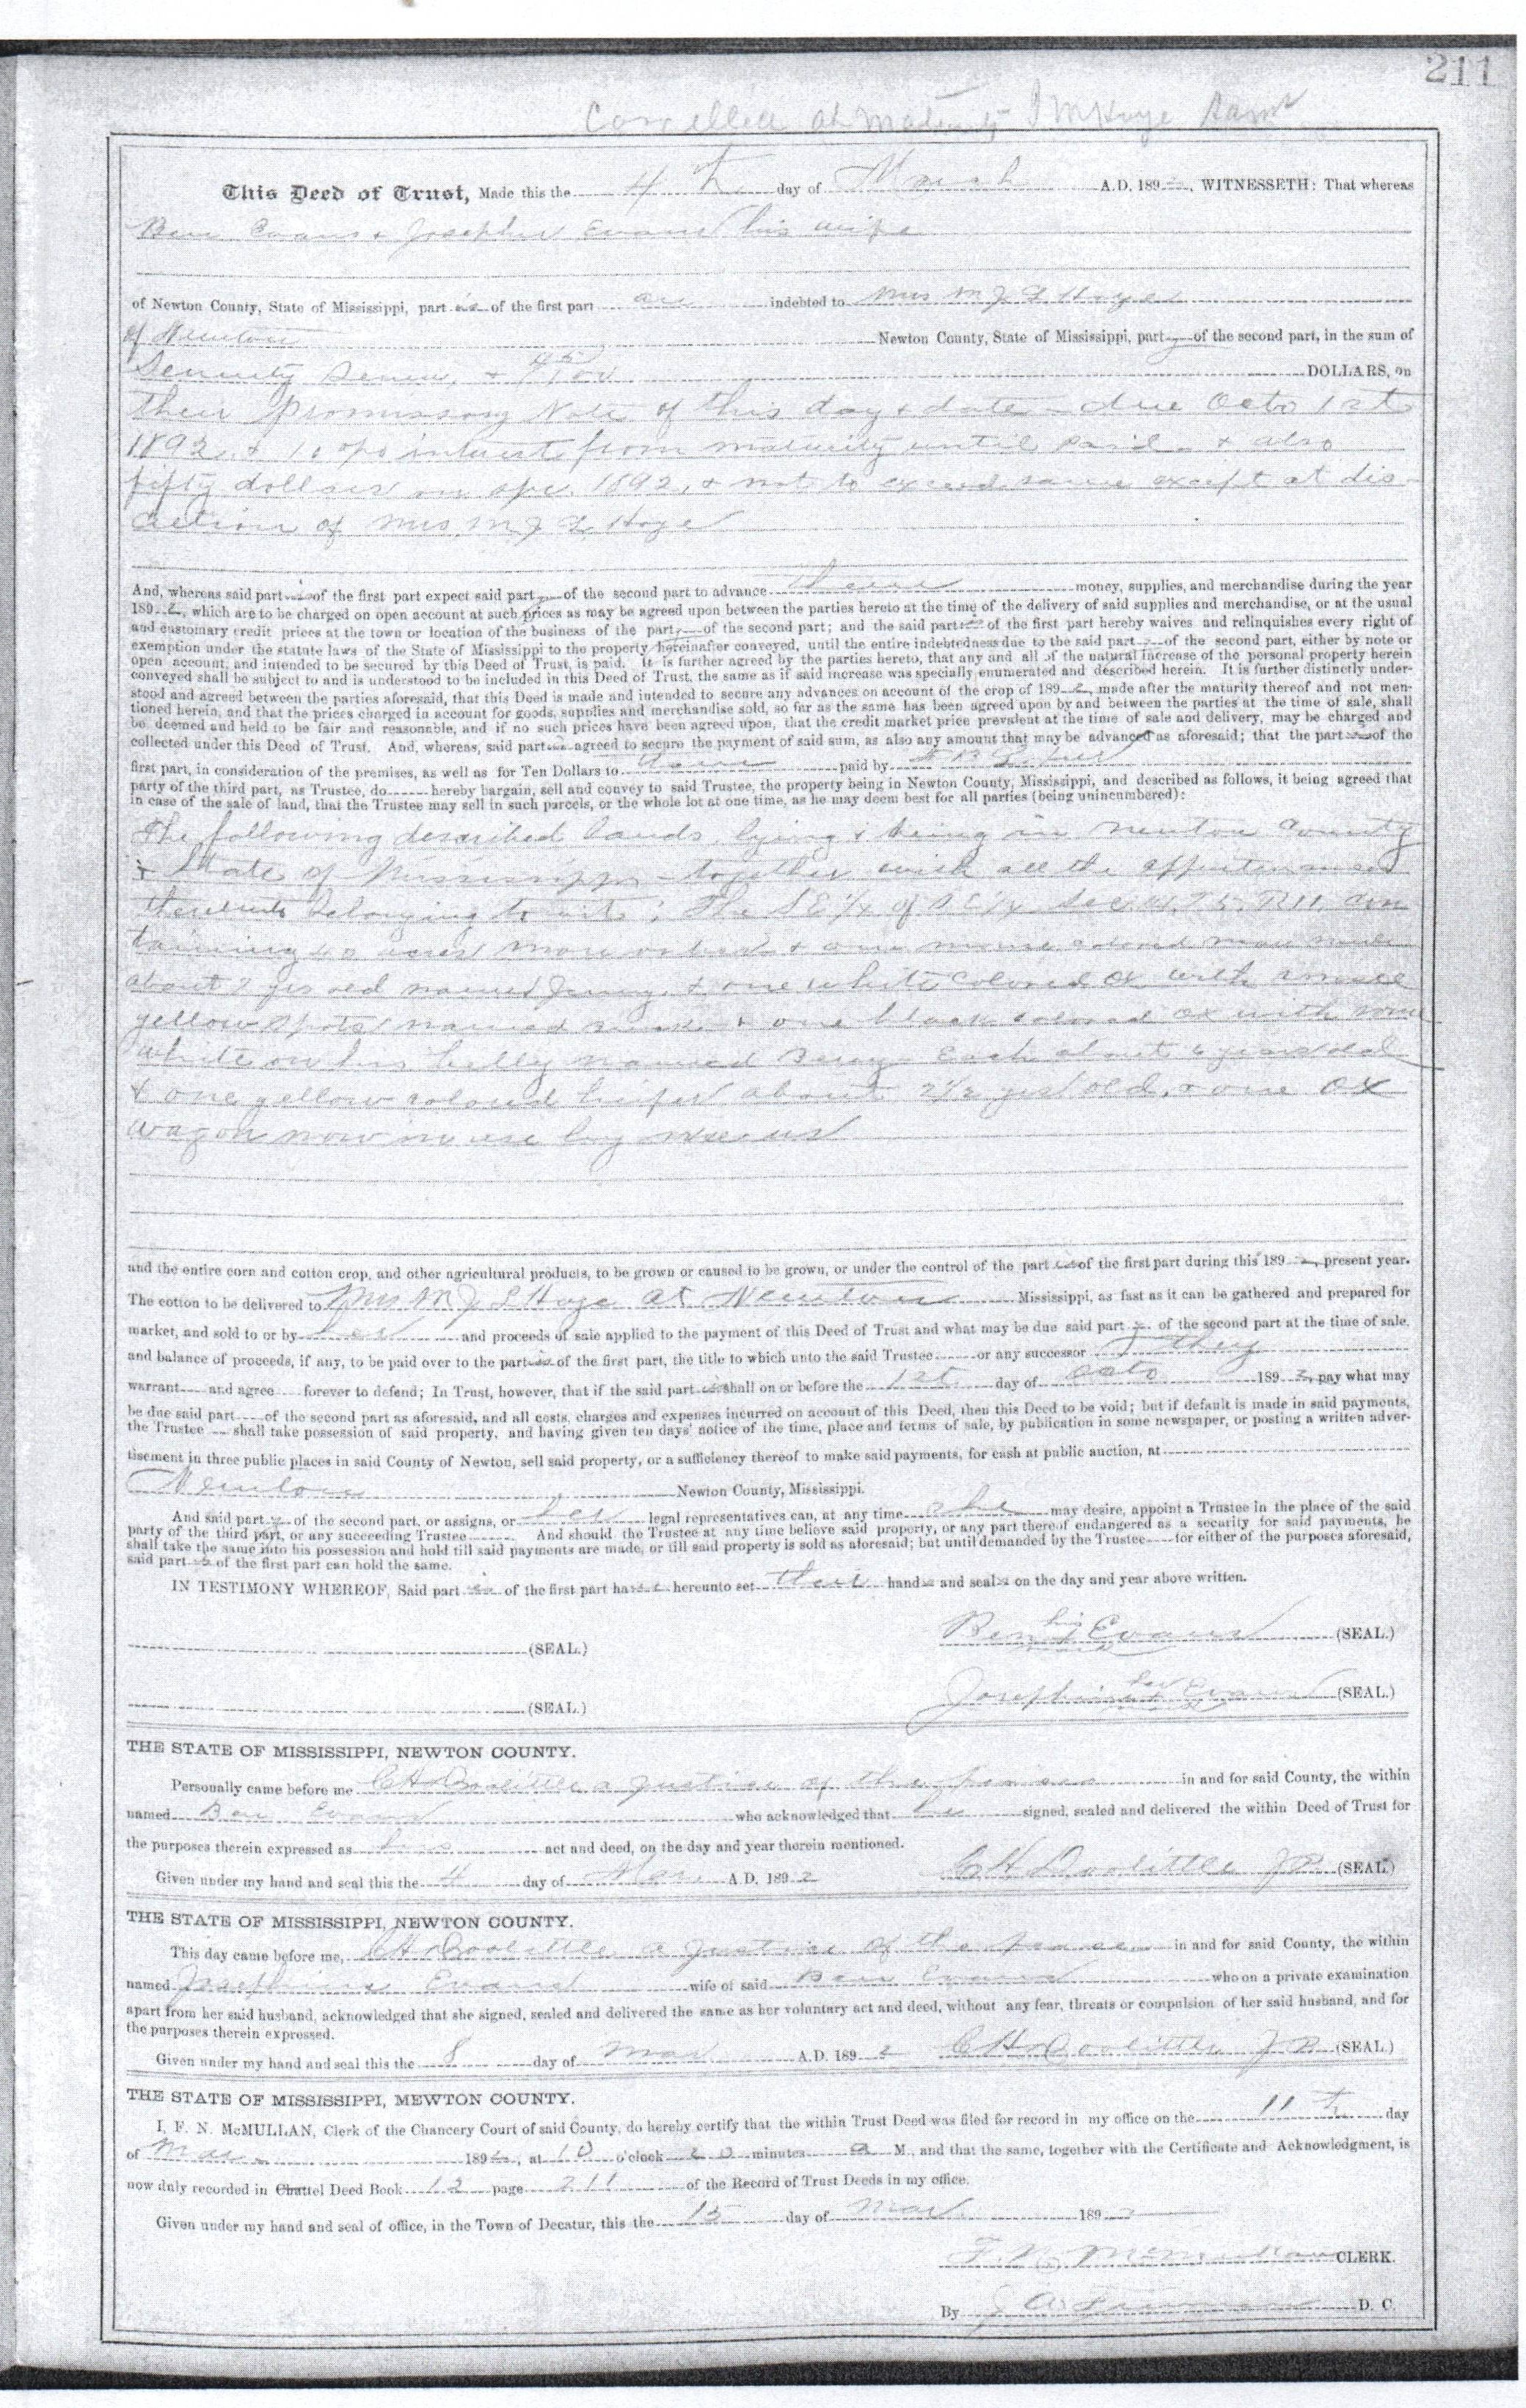 211
Cancelled at Maturity J M Hoye
This Deed of Trust, Made this the 4th day of March A.D. 1892, WITNESSETH: That whereas
Ben Evans & Josephine Evans his wife
of Newton County, State of Mississippi, part ies of the first part are indebted to Mrs M J L Hoye
of Newton Newton County, State of Mississippi, part y of the second part, in the sum of
Seventy Seven & 45/100 DOLLARS, on
their promissory Note of this day & date due Octo 1st
1892 & 10 % interest from maturity until paid & also
fifty dollars on 1892, & not to exceed same except at dis-
cretion of Mrs. M J L Hoye
And, whereas said part ies of the first part expect said part y of the second part to advance them money, supplies, and merchandise during the year
1892, which are to be charged on open account at such prices as may be agreed upon between the parties hereto at the time of the delivery of said supplies and merchandise, or at the usual
and customary credit prices at the town or location of the business of the part y of the second part; and the said part ies of the first part hereby waives and relinquishes every right of
exemption under the statute laws of the State of Mississippi to the property hereinafter conveyed, until the entire indebtedness due to the said part y of the second part, either by note or
open account, and intended to be secured by this Deed of Trust, is paid. It is further agreed by the parties hereto, that any and all of the natural increase of the personal property herein
conveyed shall be subject to and is understood to be included in this Deed of Trust, the same as if said increase was specially enumerated and described herein. It is further distinctly under-
stood and agreed between the parties aforesaid, that this Deed is made and intended to secure any advances on account of the crop of 1892, made after the maturity thereof and not men-
tioned herein, and that the prices charged in account for goods, supplies and merchandise sold, so far as the same has been agreed upon by and between the parties at the time of sale, shall
be deemed and held to be fair and reasonable, and if no such prices have been agreed upon, that the credit market price prevalent at the time of sale and delivery, may be charged and
collected under this Deed of Trust. And, whereas, said part ies agreed to secure the payment of said sum, as also any amount that may be advanced as aforesaid; that the part ies of the
first part, in consideration of the premises, as well as for Ten Dollars to them paid by
party of the third part, as Trustee, do hereby bargain, sell and convey to said Trustee, the property being in Newton County, Mississippi, and described as follows, it being agreed that
in case of the sale of land, that the Trustee may sell in such parcels, or the whole lot at one time, as he may deem best for all parties (being unincumbered):
The following described lands lying & being in Newton County
& State of Mississippi together with all the appurtenances
thereunto belonging to wit: The SE 1/4 of SE 1/4 Sec T5 R11 Con
taining 40 acres more or less & one mouse colored mare mule
about yrs old named Jenny & one white colored ox with small
yellow spots named & one black colored ox with some
white on his belly named Each about years old
& one yellow colored heifer about 2 1/2 yrs old, & one ox
wagon now in use by us
and the entire corn and cotton crop, and other agricultural products, to be grown or caused to be grown, or under the control of the part ies of the first part during this 1892, present year.
The cotton to be delivered to Mrs M J L Hoye at Newton Mississippi, as fast as it can be gathered and prepared for
market, and sold to or by her and proceeds of sale applied to the payment of this Deed of Trust and what may be due said part y of the second part at the time of sale,
and balance of proceeds, if any, to be paid over to the part ies of the first part, the title to which unto the said Trustee or any successor they
warrant and agree forever to defend; In Trust, however, that if the said part ies shall on or before the 1st day of Octo 1892, pay what may
be due said part of the second part as aforesaid, and all costs, charges and expenses incurred on account of this Deed, then this Deed to be void; but if default is made in said payments,
the Trustee shall take possession of said property, and having given ten days' notice of the time, place and terms of sale, by publication in some newspaper, or posting a written adver-
tisement in three public places in said County of Newton, sell said property, or a sufficiency thereof to make said payments, for cash at public auction, at
Newton Newton County, Mississippi.
And said part y of the second part, or assigns, or her legal representatives can, at any time she may desire, appoint a Trustee in the place of the said
party of the third part, or any succeeding Trustee And should the Trustee at any time believe said property, or any part thereof endangered as a security for said payments, he
shall take the same into his possession and hold till said payments are made, or till said property is sold as aforesaid; but until demanded by the Trustee for either of the purposes aforesaid,
said part ies of the first part can hold the same.
IN TESTIMONY WHEREOF, Said part ies of the first part have hereunto set their hands and seals on the day and year above written.
Ben his x mark Evans (SEAL.)
(SEAL.)
Josephine her x mark Evans (SEAL.)
(SEAL.)
THE STATE OF MISSISSIPPI, NEWTON COUNTY.
Personally came before me C H Doolittle a Justice of the peace in and for said County, the within
named Ben Evans who acknowledged that he signed, sealed and delivered the within Deed of Trust for
the purposes therein expressed as his act and deed, on the day and year therein mentioned.
Given under my hand and seal this the 4 day of Mar. A.D. 1892 C H Doolittle J P (SEAL.)
THE STATE OF MISSISSIPPI, NEWTON COUNTY.
This day came before me, C H Doolittle a Justice of the peace in and for said County, the within
named Josephine Evans wife of said Ben Evans who on a private examination
apart from her said husband, acknowledged that she signed, sealed and delivered the same as her voluntary act and deed, without any fear, threats or compulsion of her said husband, and for
the purposes therein expressed.
Given under my hand and seal this the 8 day of Mar A.D. 1892 C H Doolittle J P (SEAL.)
THE STATE OF MISSISSIPPI, MEWTON COUNTY.
I, F. N. McMULLAN, Clerk of the Chancery Court of said County, do hereby certify that the within Trust Deed was filed for record in my office on the 11th day
of Mar 1892, at 10 o'clock 20 minutes a M., and that the same, together with the Certificate and Acknowledgment, is
now duly recorded in Chattel Deed Book 12 page 211 of the Record of Trust Deeds in my office.
Given under my hand and seal of office, in the Town of Decatur, this the 15 day of Mar 1892
F. N. McMullan CLERK.
By D. C.